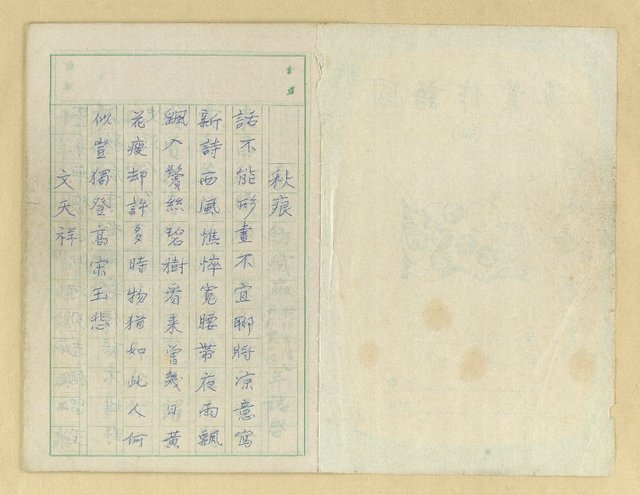 秋痕
話不能形畫不宜聊將涼意寫
新詩西風憔悴寬腰帶夜雨飄
飄入鬢絲碧樹看来曾幾日黃
花瘦却許多時物猶如此人何
似豈獨登高宋玉悲
文天祥